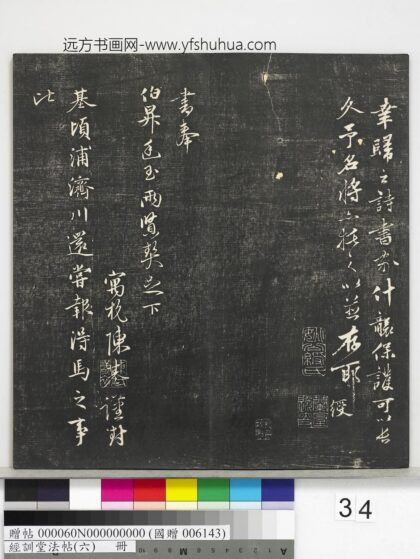 远方书画网-www.yfshuhua.com
幸歸之詩書什襲保護可以長
久予名將亦托之以並存耶 經
書奉
伯昇廷玉兩賢契足下
寓杭陳基謹封
基頃浦濟川還嘗報得馬之事
比
34
贈帖 000060N000000000 (國贈 006143)
經訓堂法帖(六) 冊